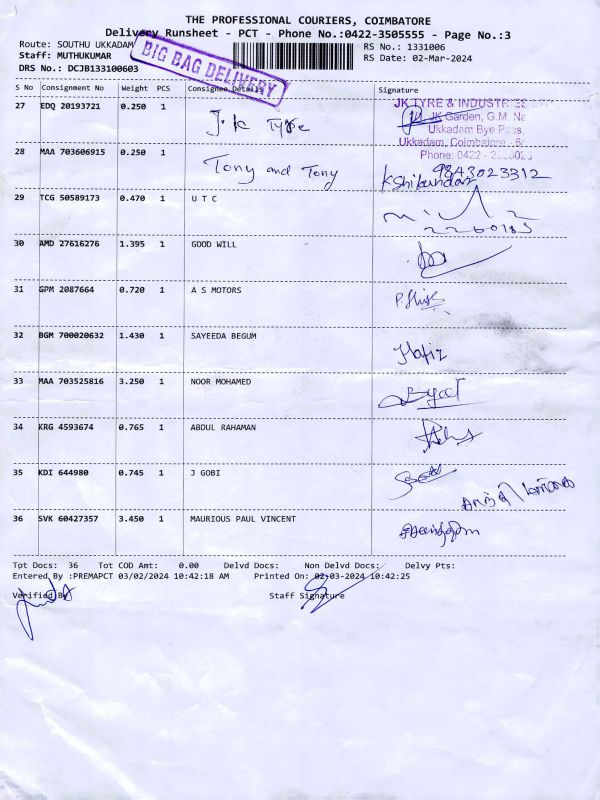 THE PROFESSIONAL COURIERS, COIMBATORE
Delivery Runsheet - PCT - Phone No.:0422-3505555 - Page No.:3
Route: SOUTHU UKKADAM
RS No.: 1331006
Staff: MUTHUKUMAR
RS Date: 02-Mar-2024
DRS No.: DCJB133100603
BIG BAG DELIVERY
S No Consignment No Weight PCS Consignee Details Signature
27 EDQ 20193721 0.250 1 J.K Tyre
JK TYRE & INDUSTRIES
JK Garden, G.M. Na
Ukkadam Bye Pass,
Ukkadam, Coimbatore
Phone: 0422 -
28 MAA 703606915 0.250 1 Tony and Tony
9843023312
29 TCG 50589173 0.470 1 U T C
2260185
30 AMD 27616276 1.395 1 GOOD WILL
31 GPM 2087664 0.720 1 A S MOTORS
32 BGM 700020632 1.430 1 SAYEEDA BEGUM
Hafiz
33 MAA 703525816 3.250 1 NOOR MOHAMED
34 KRG 4593674 0.765 1 ABDUL RAHAMAN
35 KDI 644980 0.745 1 J GOBI
36 SVK 60427357 3.450 1 MAURIOUS PAUL VINCENT
Tot Docs: 36 Tot COD Amt: 0.00 Delvd Docs: Non Delvd Docs: Delvy Pts:
Entered By :PREMAPCT 03/02/2024 10:42:18 AM Printed On: 02-03-2024 10:42:25
Verified By Staff Signature